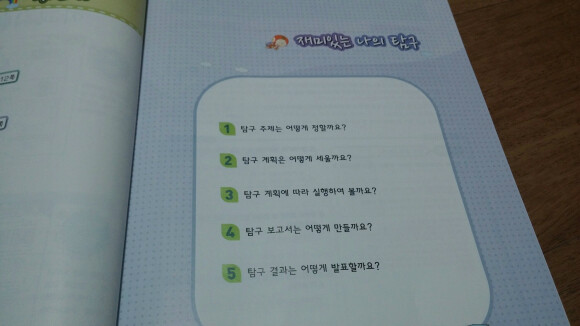 재미있는 나의 탐구
1 탐구 주제는 어떻게 정할까요?
2 탐구 계획은 어떻게 세울까요?
3 탐구 계획에 따라 실행하여 볼까요?
4 탐구 보고서는 어떻게 만들까요?
5 탐구 결과는 어떻게 발표할까요?